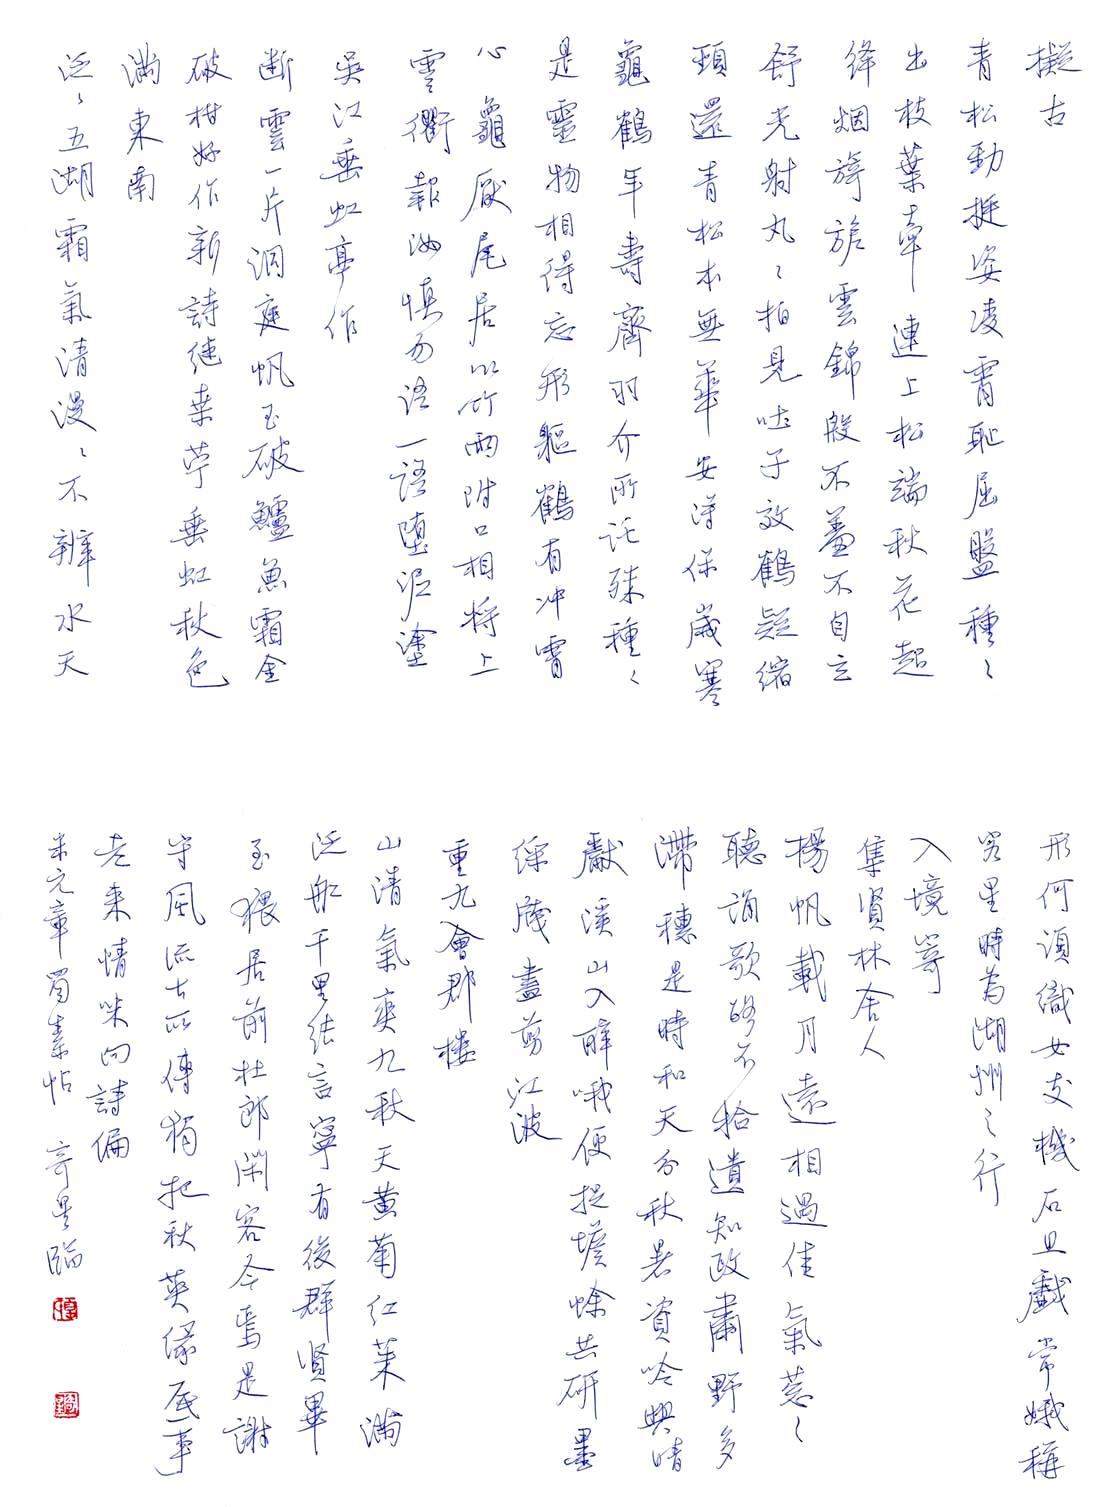 擬古
青松勁挺姿凌霄恥屈盤種〻
出枝葉牽連上松端秋花起
絳烟旖旎雲錦殷不羞不自立
舒光射丸〻柏見吐子效鶴疑縮
頸還青松本無華安得保歲寒
龜鶴年壽齊羽介所託殊種〻
是靈物相得忘形軀鶴有冲霄
心龜厭尾居以竹兩附口相將上
雲衢報汝慎勿語一語墮泥塗
吳江垂虹亭作
斷雲一片洞庭帆玉破鱸魚霜金
破柑好作新詩继桑苧垂虹秋色
滿東南
泛〻五湖霜氣清漫〻不辨水天
形何須織女支機石且戲常娥稱
客星時為湖州之行
入境寄
集賢林舍人
楊帆載月遠相過佳氣葱〻
聽誦歌路不拾遺知政肅野多
滯穗是時和天分秋暑資吟興晴
獻溪山入醉哦便捉蟾蜍共研墨
綵牋盡剪江波
重九會郡樓
山清氣爽九秋天黃菊红茱滿
泛船千里结言寧有後群賢畢
至猥居前杜郎閑客今焉是謝
守風流古所傳獨把秋英緣底事
老来情味向詩偏
米元章蜀素帖